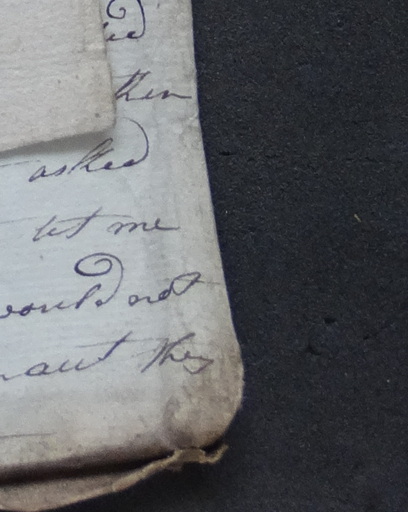 then
asked
let me
would not
they